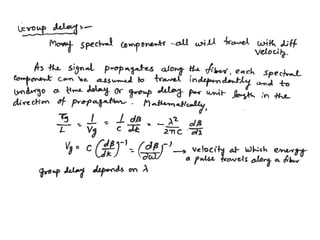 Group delay :-
Many spectral components - all will travel with diff
velocity.
As the signal propagates along the fiber, each spectral
component can be assumed to travel independently and to
undergo a time delay or group delay per unit length in the
direction of propagation. Mathematically,
Tg/L = 1/Vg = 1/C dβ/dk = - λ²/2πC dβ/dλ
Vg = C (dβ/dk)⁻¹ = (dβ/dω)⁻¹ → velocity at which energy
a pulse travels along a fiber
group delay depends on λ